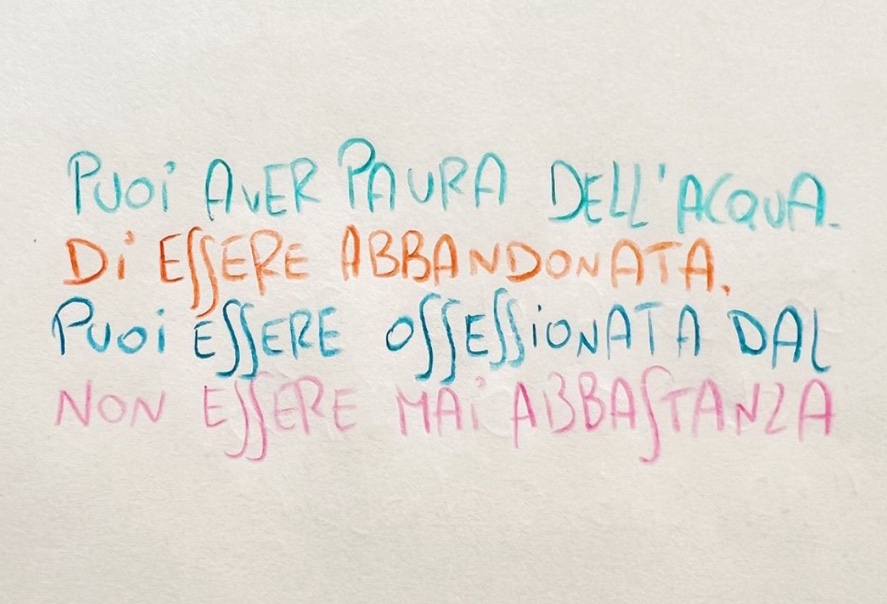 PUOI AVER PAURA DELL'ACQUA.
DI ESSERE ABBANDONATA.
PUOI ESSERE OSSESSIONATA DAL
NON ESSERE MAI ABBASTANZA